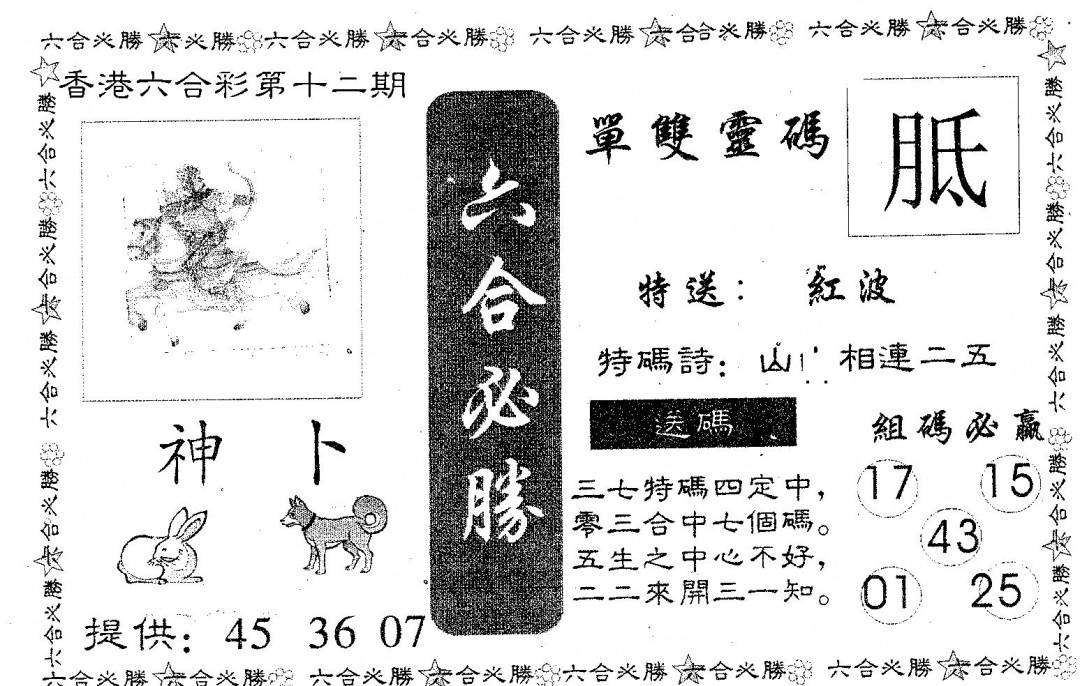 六合必勝 六必勝 六合必勝 六合必勝 六合必勝 六合合必勝 六合必勝 六合必勝
香港六合彩第十二期
神卜
提供：45 36 07
六合必勝
單雙靈碼
胝
特送：紅波
特碼詩：山 相連二五
送碼
三七特碼四定中，
零三合中七個碼。
五生之中心不好，
二二來開三一知。
組碼必贏
17 15
43
01 25
六合必勝 六合必勝 六合必勝 六合必勝
六合必勝 六合必勝 六合必勝 六合必勝
六合必勝 六合必勝 六合必勝 六合必勝 六合必勝 六合必勝 六合必勝 六合必勝